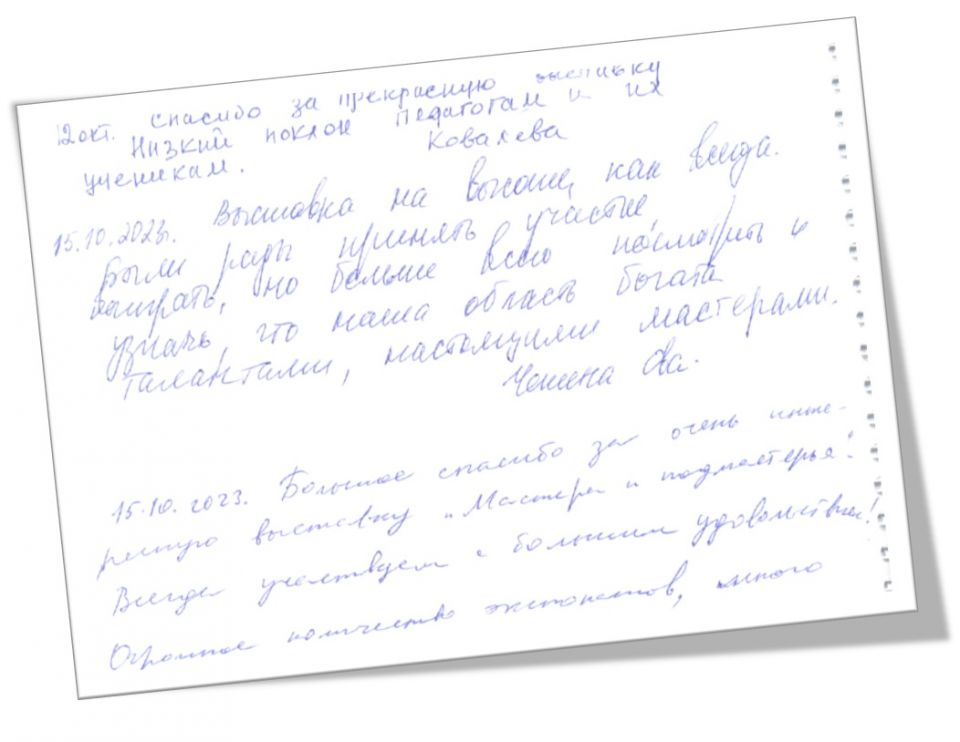 12 окт. спасибо за прекрасную выставку
Низкий поклон педагогам и их
ученикам. Ковалева
15.10.2023г. Выставка на высоте, как всегда.
Были рады принять участие,
поиграть, но больше всего посмотреть и
узнать, что наша область богата
талантами, настоящими мастерами.
15.10.2023. Большое спасибо за очень инте-
ресную выставку „Мастера и подмастерья"!
Всегда участвуем с большим удовольствием!
Огромное количество экспонатов, много